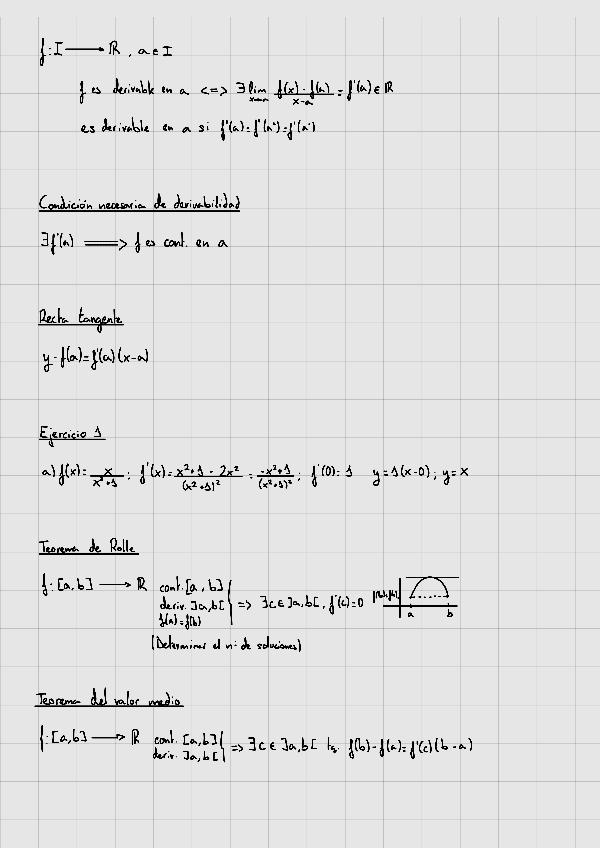 f: I → ℝ, a ∈ I
f es derivable en a <=> ∃ lim x→a (f(x) - f(a))/(x-a) = f'(a) ∈ ℝ
es derivable en a si f'(a) = f'(a⁺) = f'(a⁻)
Condición necesaria de derivabilidad
∃f'(a) ⟹ f es cont. en a
Recta tangente
y - f(a) = f'(a)(x-a)
Ejercicio 1
a) f(x) = x/(x²+1); f'(x) = (x²+1 - 2x²)/(x²+1)² = (-x²+1)/(x²+1)²; f'(0) = 1 y = 1(x-0); y = x
Teorema de Rolle
f: [a, b] → ℝ cont. [a, b]
deriv. ]a, b[ => ∃c ∈ ]a, b[, f'(c) = 0
f(a) = f(b)
a b
(Determinar el nº de soluciones)
Teorema del valor medio
f: [a, b] → ℝ cont. [a, b]
deriv. ]a, b[ => ∃c ∈ ]a, b[ tq. f(b) - f(a) = f'(c)(b-a)